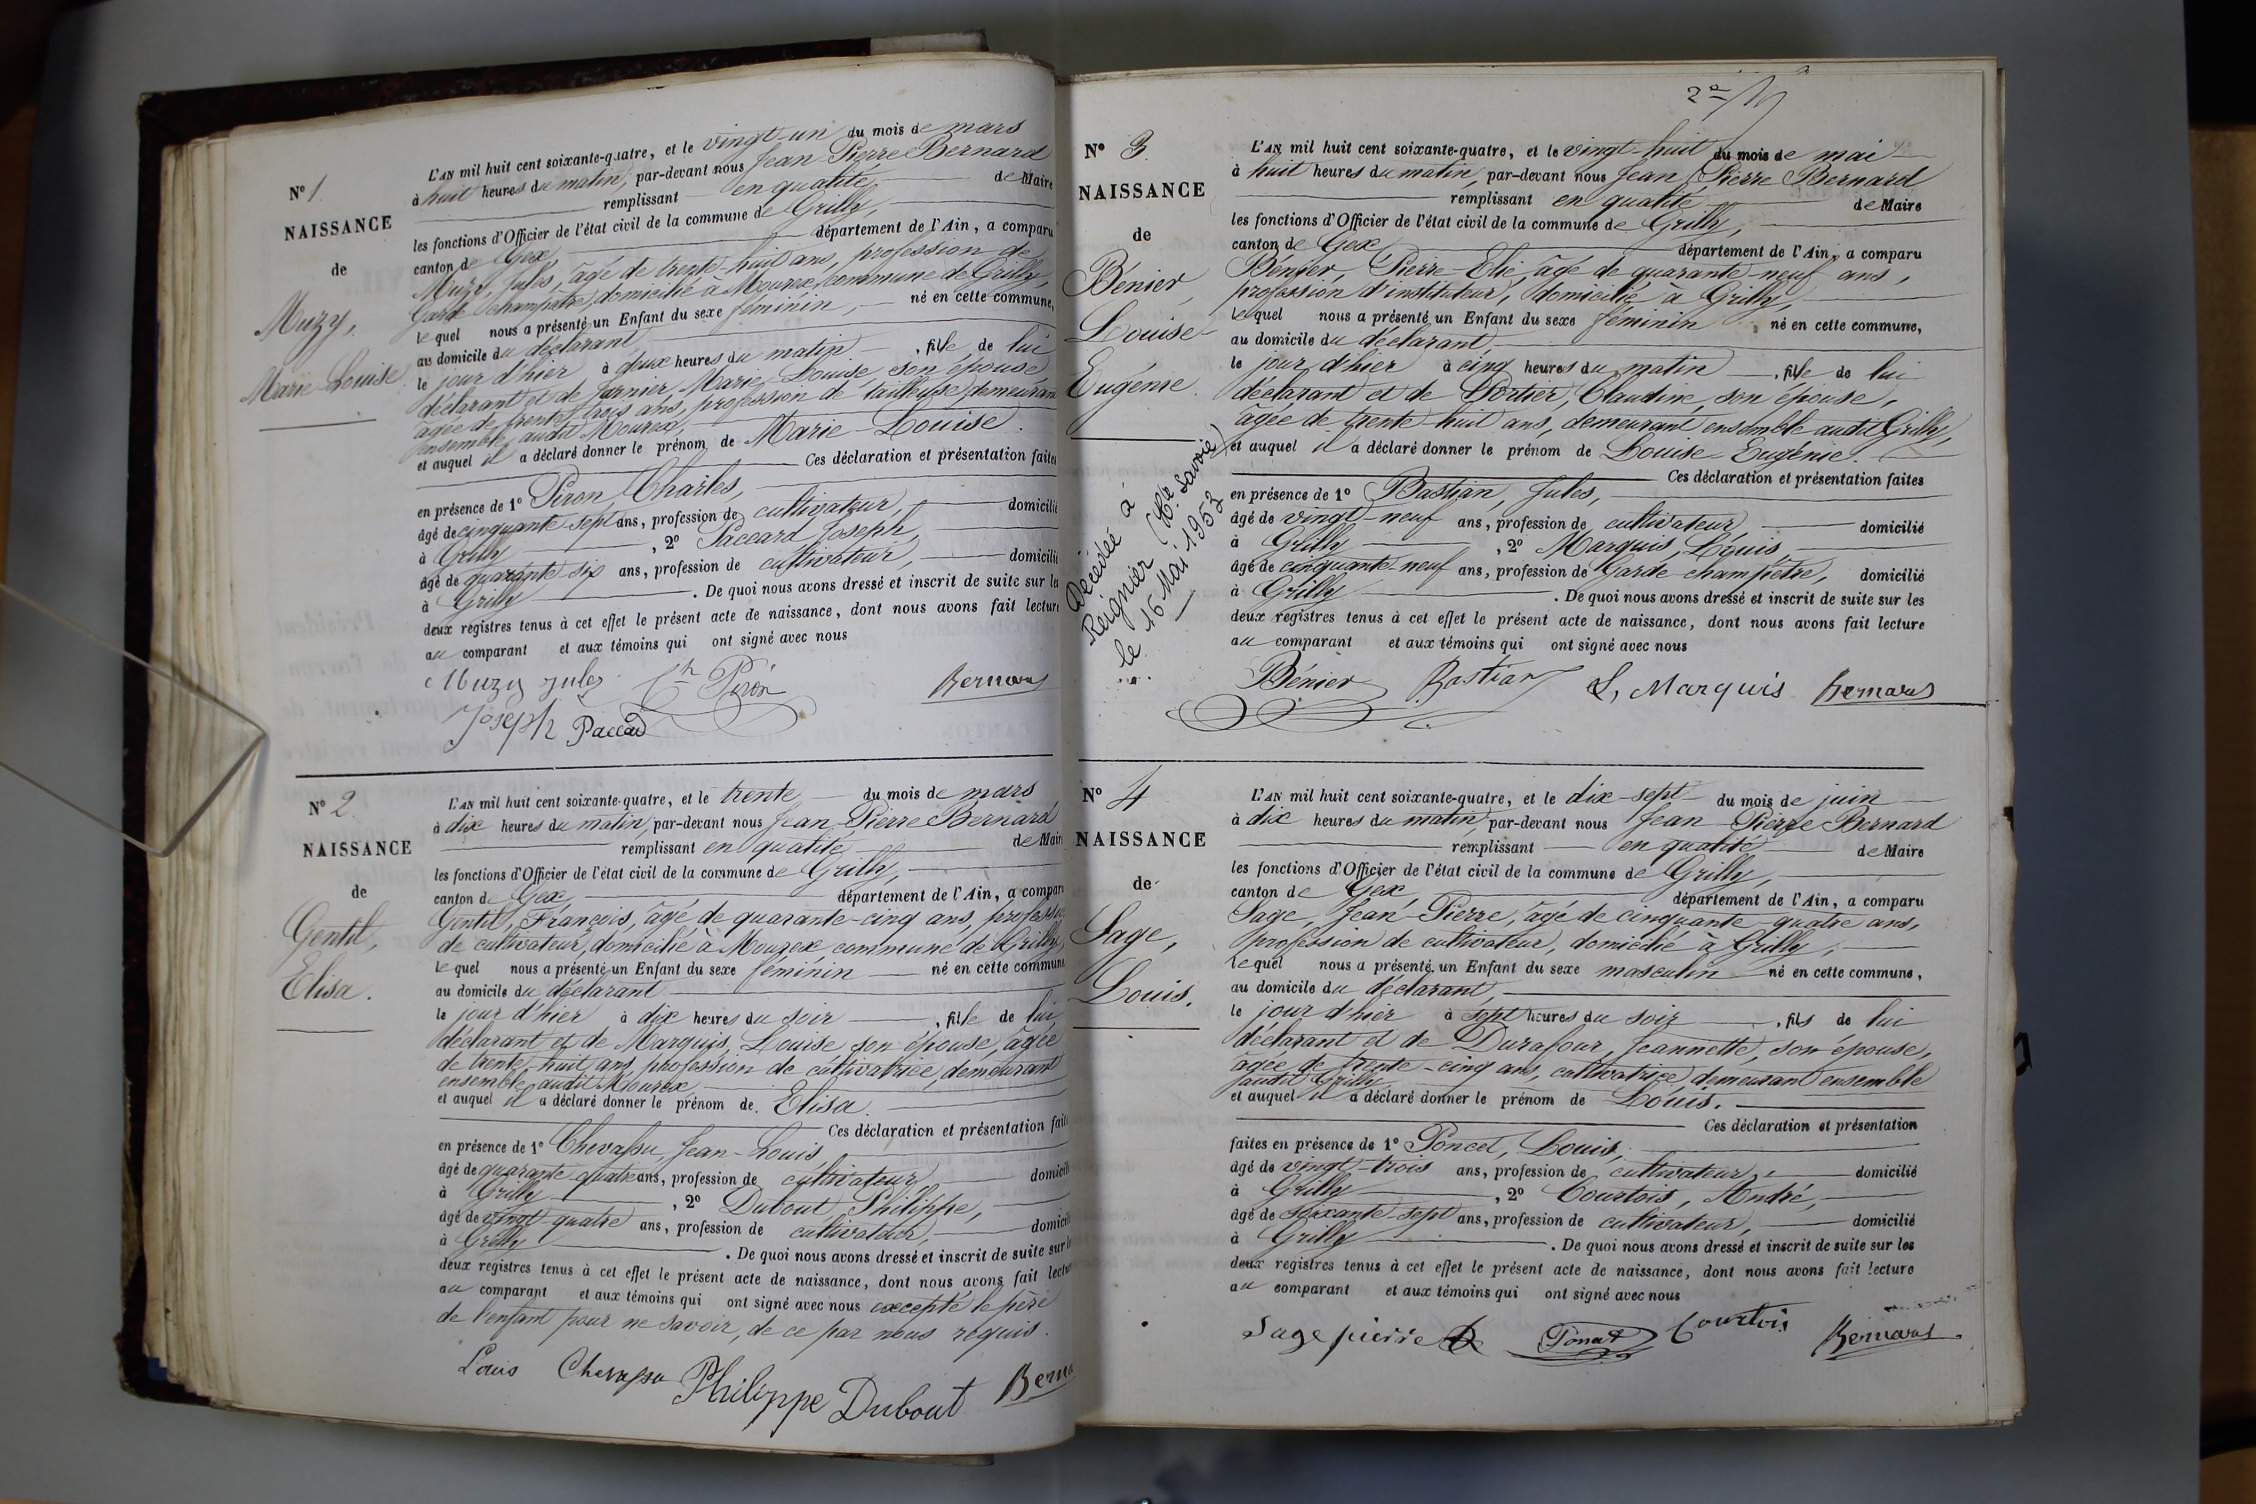 N° 1
NAISSANCE
de
Muzy,
Marie-Louise
L'AN mil huit cent soixante-quatre, et le vingt-un du mois de mars
à huit heures du matin, par-devant nous Jean-Pierre Bernard
remplissant en qualité de Maire
les fonctions d'Officier de l'état civil de la commune de Grilly,
canton de Gex, département de l'Ain, a comparu
Muzy, Jules, âgé de trente-huit ans, profession de
Garde champêtre, domicilié à Mourex, commune de Grilly,
lequel nous a présenté un Enfant du sexe féminin, né en cette commune,
au domicile du déclarant
le jour d'hier à deux heures du matin, fille de lui
déclarant et de Fornier, Marie-Louise son épouse
âgée de trente-trois ans, profession de tailleuse demeurant
ensemble audit Mourex,
et auquel il a déclaré donner le prénom de Marie-Louise.
Ces déclaration et présentation faites
en présence de 1° Piron, Charles,
âgé de cinquante-sept ans, profession de cultivateur, domicilié
à Grilly, 2° Paccard Joseph,
âgé de quarante-six ans, profession de cultivateur, domicilié
à Grilly. De quoi nous avons dressé et inscrit de suite sur les
deux registres tenus à cet effet le présent acte de naissance, dont nous avons fait lecture
au comparant et aux témoins qui ont signé avec nous
Muzy jules Ch Piron Bernard
Joseph Paccard
N° 2.
NAISSANCE
de
Gentil,
Elisa.
L'AN mil huit cent soixante-quatre, et le trente du mois de mars
à dix heures du matin, par-devant nous Jean-Pierre Bernard
remplissant en qualité de Maire
les fonctions d'Officier de l'état civil de la commune de Grilly,
canton de Gex, département de l'Ain, a comparu
Gentil, François, âgé de quarante-cinq ans, profession
de cultivateur, domicilié à Mourex, commune de Grilly,
lequel nous a présenté un Enfant du sexe féminin né en cette commune
au domicile du déclarant
le jour d'hier à dix heures du soir, fille de lui
déclarant et de Marquis, Louise son épouse, âgée
de trente-huit ans, profession de cultivatrice, demeurant
ensemble audit Mourex
et auquel il a déclaré donner le prénom de Elisa.
Ces déclaration et présentation faites
en présence de 1° Chevassu, Jean-Louis
âgé de quarante-quatre ans, profession de cultivateur domicilié
à Grilly, 2° Dubout Philippe,
âgé de vingt-quatre ans, profession de cultivateur, domicilié
à Grilly. De quoi nous avons dressé et inscrit de suite sur les
deux registres tenus à cet effet le présent acte de naissance, dont nous avons fait lecture
au comparant et aux témoins qui ont signé avec nous excepté le père
de l'enfant pour ne savoir, de ce par nous requis.
Louis Chevassu Philippe Dubout Berna
2e
N° 3.
NAISSANCE
de
Bénier,
Louise-
Eugénie.
Décédée à
Reignier (Hte Savoie)
le 16 Mai 1953
L'AN mil huit cent soixante-quatre, et le vingt-huit du mois de mai
à huit heures du matin, par-devant nous Jean-Pierre Bernard
remplissant en qualité de Maire
les fonctions d'Officier de l'état civil de la commune de Grilly,
canton de Gex département de l'Ain, a comparu
Bénier, Pierre-Elie, âgé de quarante-neuf ans,
profession d'instituteur, domicilié à Grilly,
lequel nous a présenté un Enfant du sexe féminin, né en cette commune,
au domicile du déclarant
le jour d'hier à cinq heures du matin, fille de lui
déclarant et de Portier, Claudine, son épouse,
âgée de trente-huit ans, demeurant ensemble audit Grilly,
et auquel il a déclaré donner le prénom de Louise-Eugénie.
Ces déclaration et présentation faites
en présence de 1° Bastian, Jules,
âgé de vingt-neuf ans, profession de cultivateur domicilié
à Grilly, 2° Marquis, Louis,
âgé de cinquante-neuf ans, profession de Garde-champêtre, domicilié
à Grilly. De quoi nous avons dressé et inscrit de suite sur les
deux registres tenus à cet effet le présent acte de naissance, dont nous avons fait lecture
au comparant et aux témoins qui ont signé avec nous
Bénier Bastian L, Marquis Bernard
N° 4
NAISSANCE
de
Sage,
Louis.
L'AN mil huit cent soixante-quatre, et le dix-sept du mois de juin
à dix heures du matin, par-devant nous Jean-Pierre Bernard
remplissant en qualité de Maire
les fonctions d'Officier de l'état civil de la commune de Grilly,
canton de Gex, département de l'Ain, a comparu
Sage, Jean-Pierre, âgé de cinquante-quatre ans,
profession de cultivateur, domicilié à Grilly,
lequel nous a présenté un Enfant du sexe masculin né en cette commune,
au domicile du déclarant,
le jour d'hier à sept heures du soir, fils de lui
déclarant et de Durafour, Jeannette, son épouse,
âgée de trente-cinq ans, cultivatrice, demeurant ensemble
audit Grilly
et auquel il a déclaré donner le prénom de Louis.
Ces déclaration et présentation
faites en présence de 1° Poncet, Louis,
âgé de vingt-trois ans, profession de cultivateur, domicilié
à Grilly, 2° Courtois, André,
âgé de soixante-sept ans, profession de cultivateur, domicilié
à Grilly. De quoi nous avons dressé et inscrit de suite sur les
deux registres tenus à cet effet le présent acte de naissance, dont nous avons fait lecture
au comparant et aux témoins qui ont signé avec nous
Sage pierre Courtois Bernard